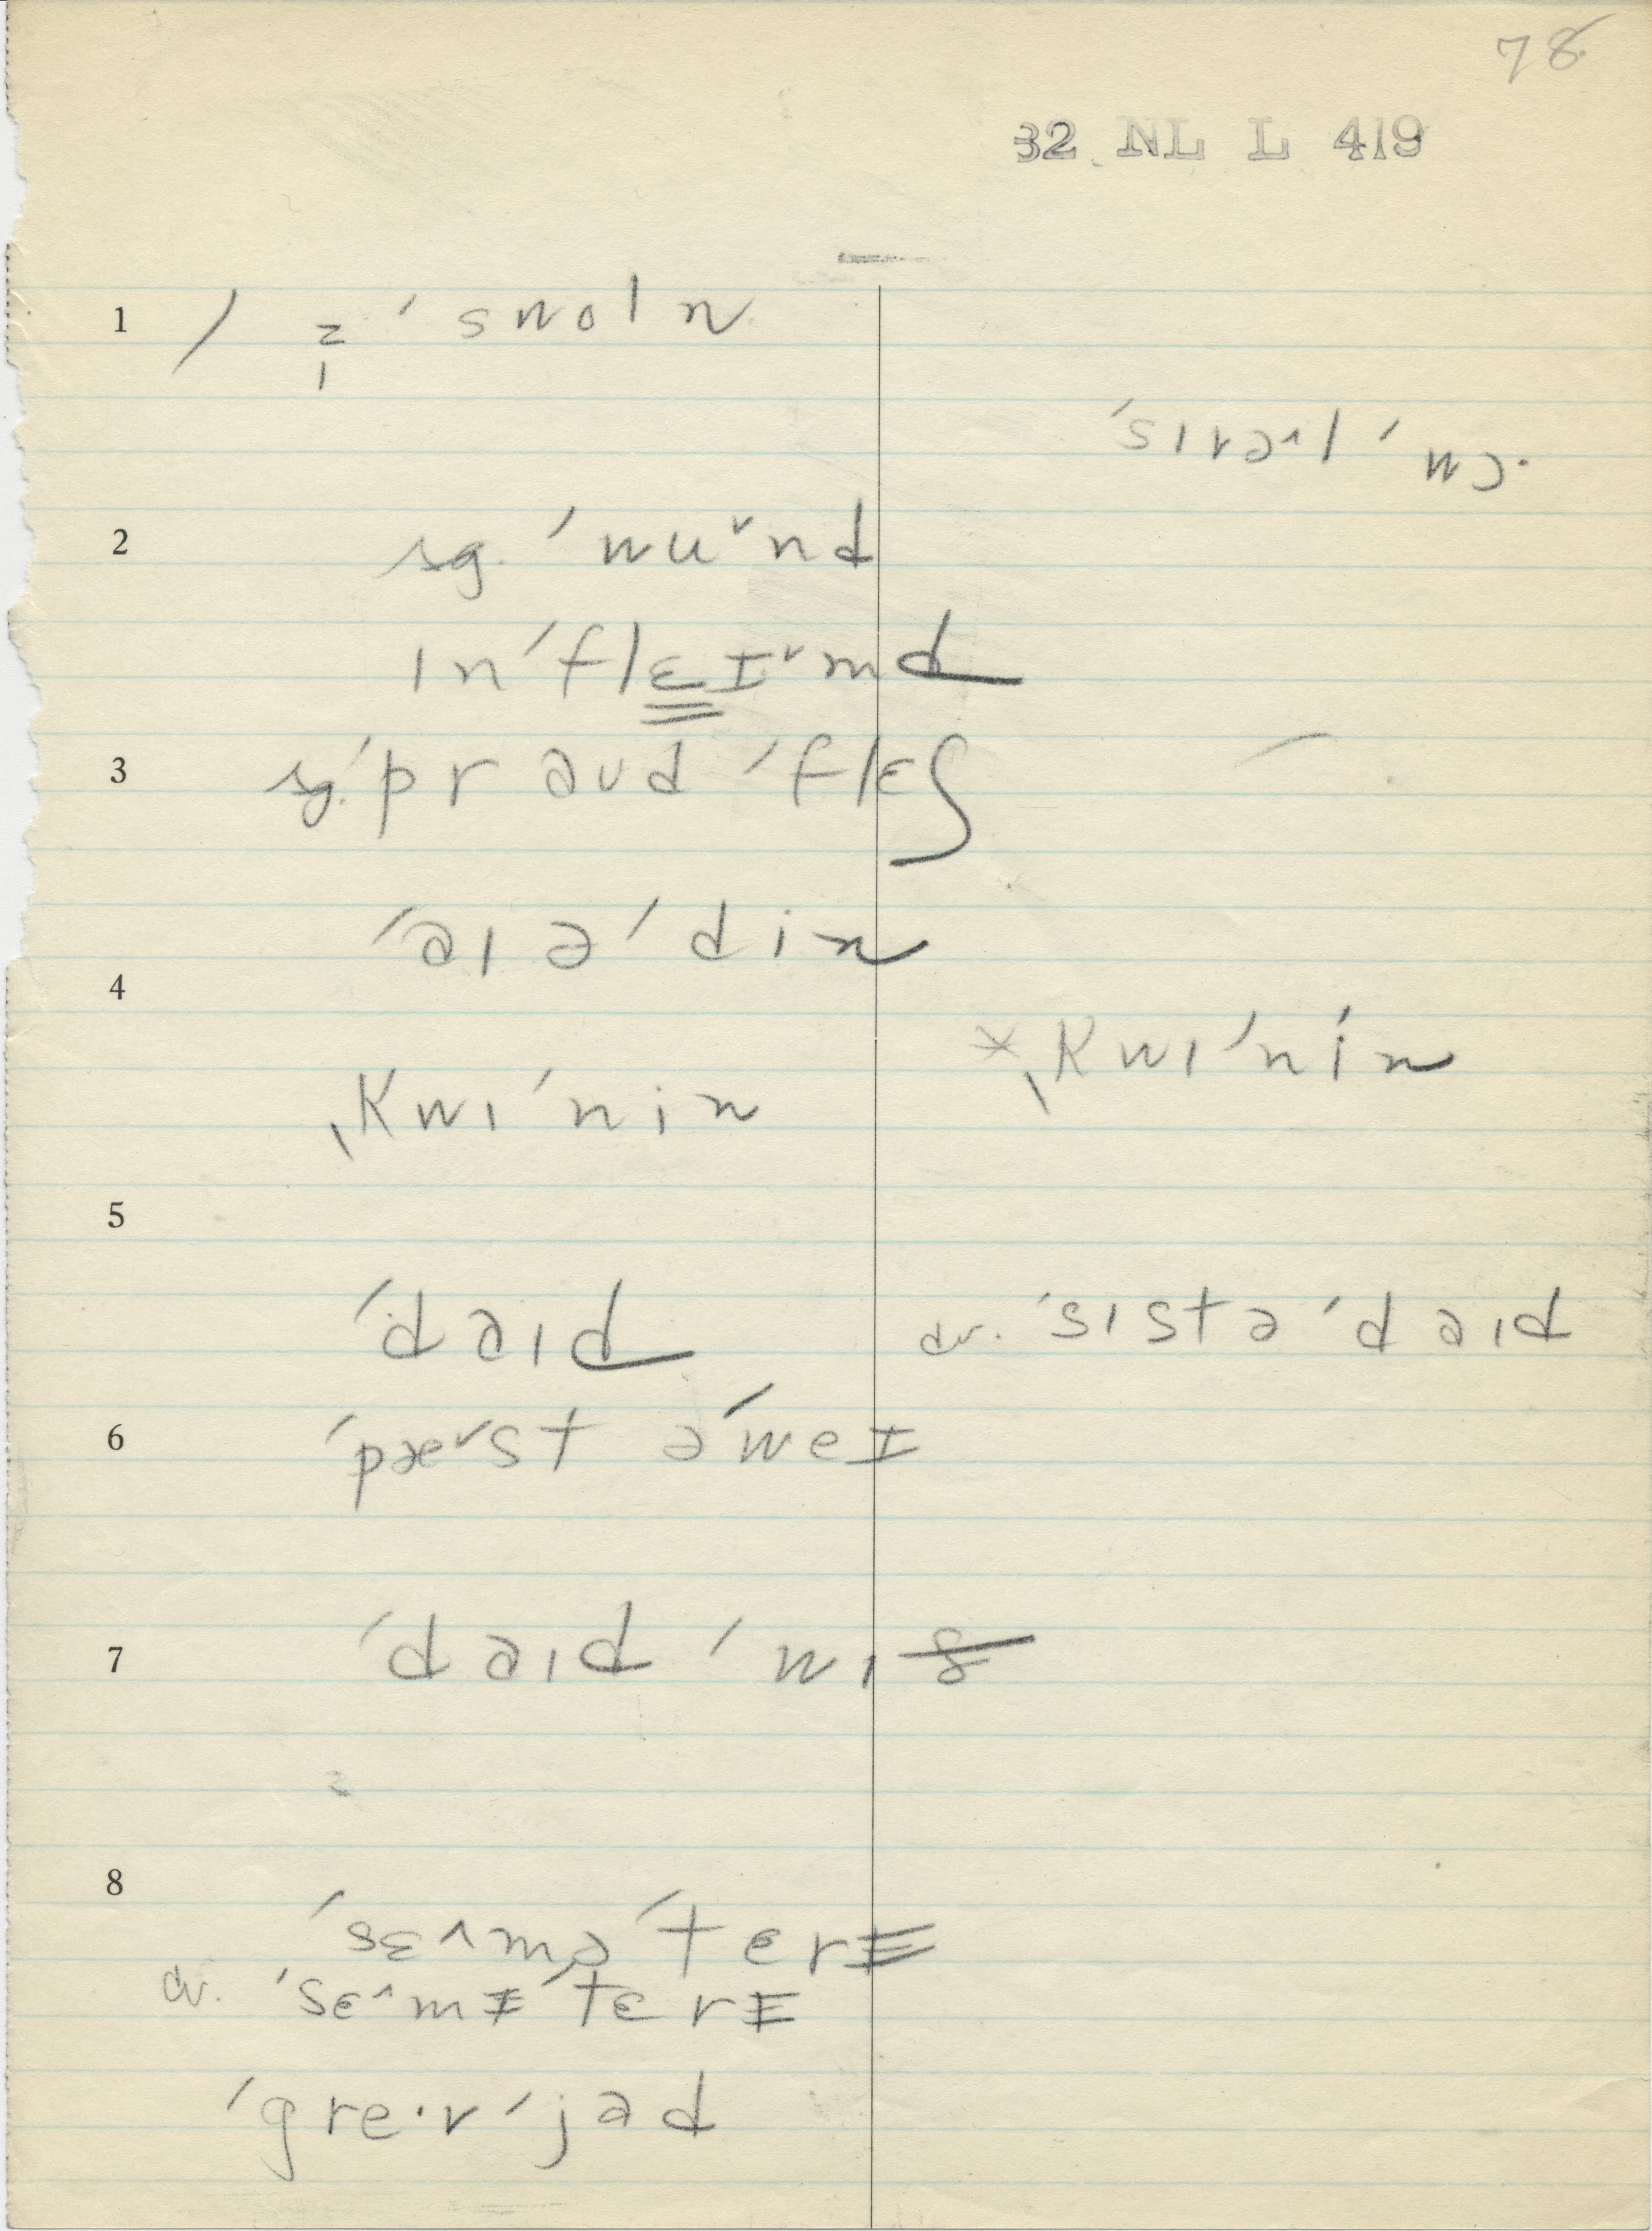 78
32 NL L 419
1 / z̩ ˈswoln
ˈsɪvəˈl ˈwɔ.
2 sg. ˈwuˇnd
ɪnˈflɛɪˇmd
3 sg. ˈpraʊd ˈflɛʃ
ˈaɪəˈdin
4
ˌkwɪˈnin
*ˌkwɪˈnin
5
ˈdaɪd
cv. ˈsɪstəˈdaɪd
6 ˈpæˇst əˈweɪ
7 ˈdaɪd ˈwɪ
8
ˈsɛ^məˈterɪ
cv. ˈsɛ^mɪˈtɛrɪ
ˈgre·v ˈjad